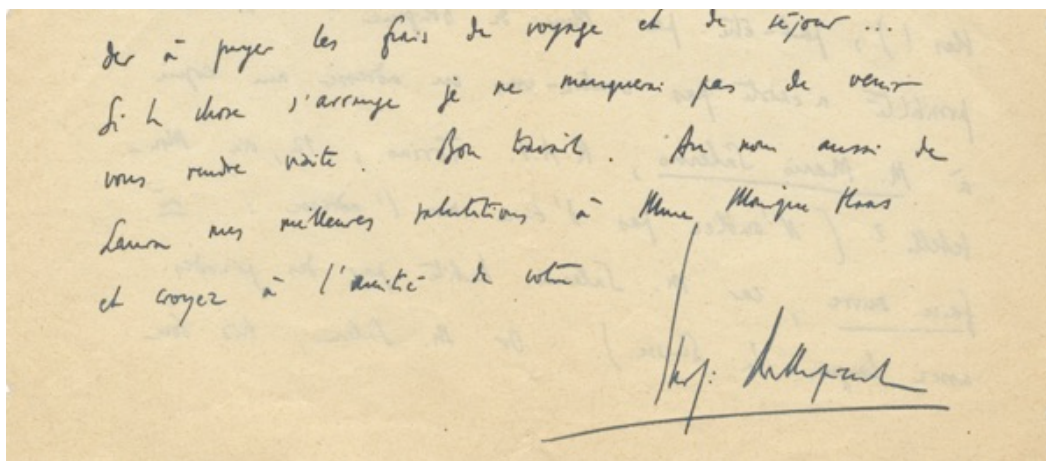 der à payer les frais de voyage et de séjour ...
Si la chose s'arrange je ne manquerai pas de venir
vous rendre visite. Bon travail. Au nom aussi de
Laura mes meilleures salutations à Mme Monique Haas
et croyez à l'amitié de votre